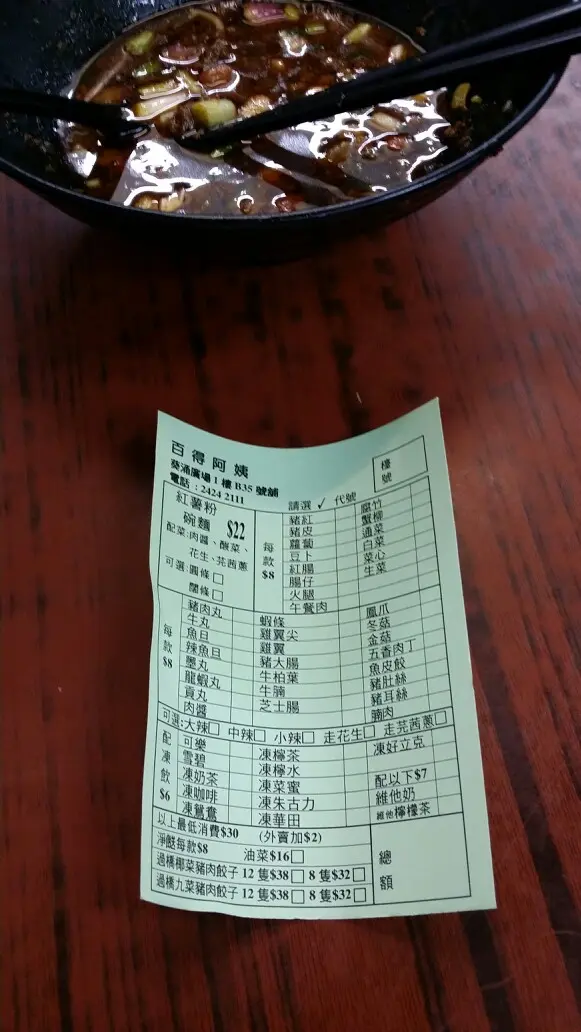 百得阿姨
葵涌廣場1樓B35號舖
電話：2424 2111
檯號
紅薯粉
碗麵 $22
配菜:肉醬、酸菜、
花生、芫茜蔥
可選:圓條
闊條
請選 ✓ 代號
每款 $8
豬紅
豬皮
蘿蔔
豆卜
紅腸
腸仔
火腿
午餐肉
腐竹
蟹柳
通菜
白菜
菜心
生菜
每款 $8
豬肉丸
牛丸
魚旦
辣魚旦
墨丸
龍蝦丸
貢丸
肉醬
蝦條
雞翼尖
雞翼
豬大腸
牛柏葉
牛腩
芝士腸
鳳爪
冬菇
金菇
五香肉丁
魚皮餃
豬肚絲
豬耳絲
腩肉
可選:大辣 中辣 小辣 走花生 走芫茜蔥
配凍飲 $6
可樂
雪碧
凍奶茶
凍咖啡
凍鴛鴦
凍檸茶
凍檸水
凍菜蜜
凍朱古力
凍華田
凍好立克
配以下$7
維他奶
維他檸檬茶
以上最低消費$30 (外賣加$2)
淨餸每款$8 油菜$16
過橋椰菜豬肉餃子 12隻$38 8隻$32
過橋九菜豬肉餃子 12隻$38 8隻$32
總額